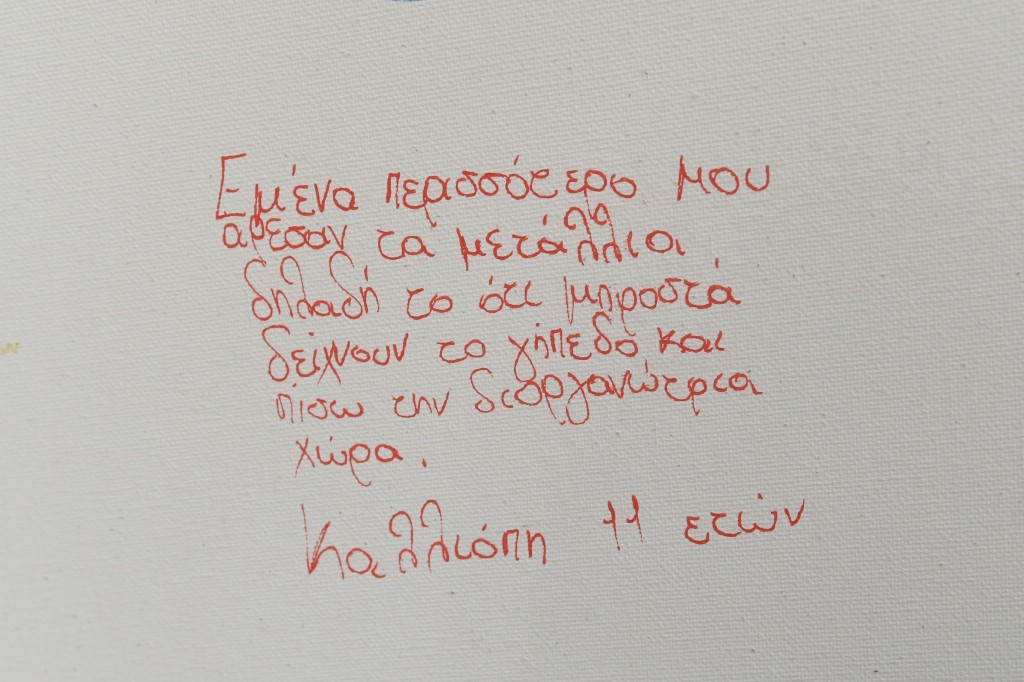 Εμένα περισσότερο μου
άρεσαν τα μετάλλια
δηλαδή το ότι μπροστά
δείχνουν το γήπεδο και
πίσω την διοργανώτρια
χώρα.
Καλλιόπη 11 ετών